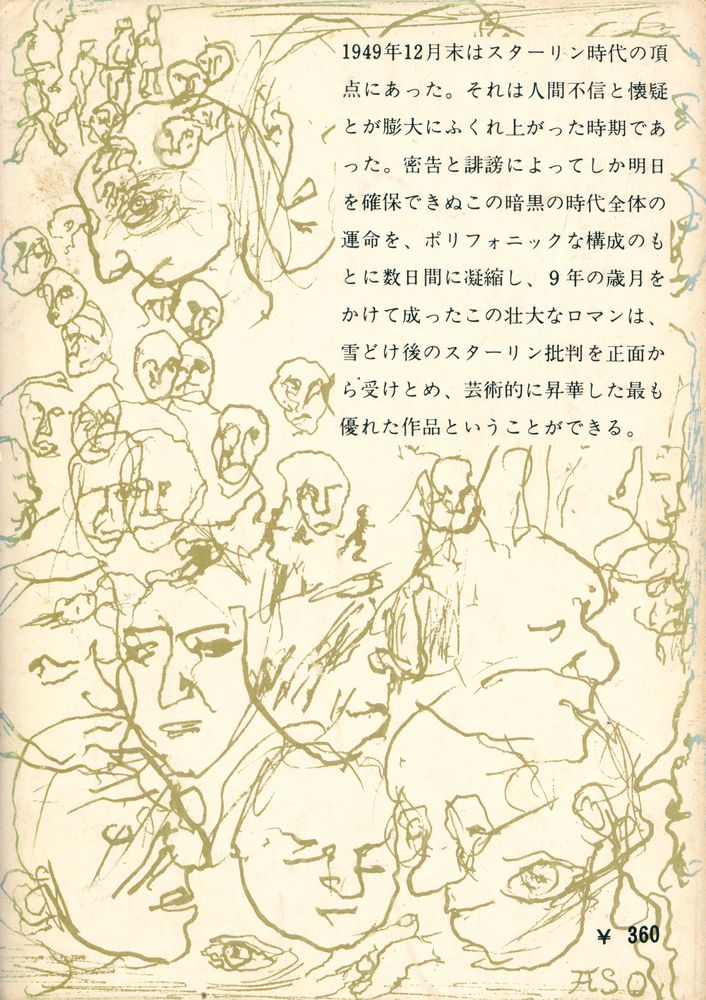 1949年12月末はスターリン時代の頂
点にあった。それは人間不信と懐疑
とが膨大にふくれ上がった時期であ
った。密告と誹謗によってしか明日
を確保できぬこの暗黒の時代全体の
運命を、ポリフォニックな構成のも
とに数日間に凝縮し、9年の歳月を
かけて成ったこの壮大なロマンは、
雪どけ後のスターリン批判を正面か
ら受けとめ、芸術的に昇華した最も
優れた作品ということができる。
¥ 360
ASO